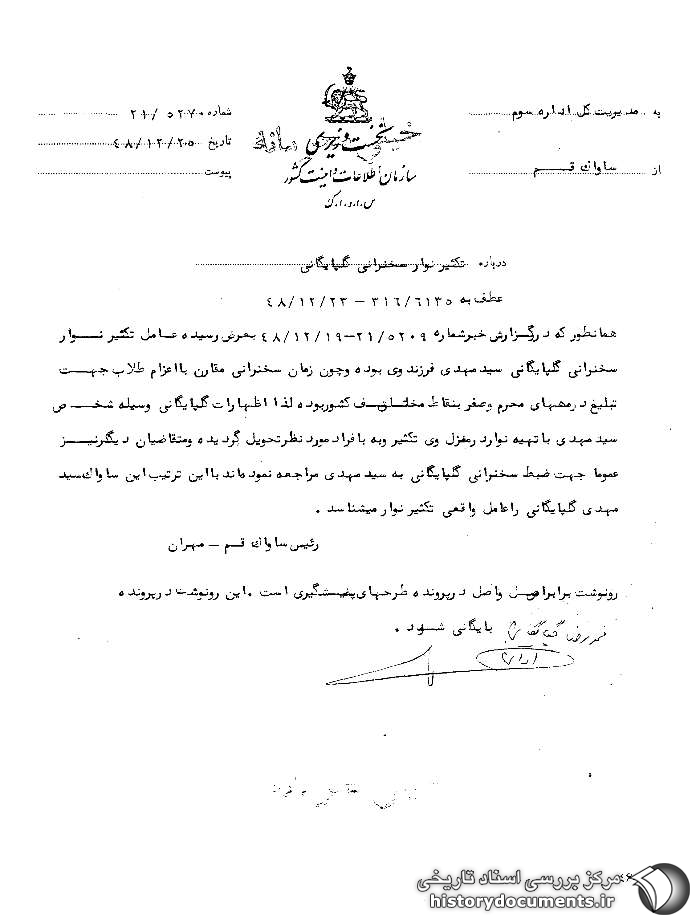 به مدیریت کل اداره سوم
از ساواک قم
نخست وزیری
سازمان اطلاعات و امنیت کشور
س.ا.و.ا.ک
شماره ۲۱/۵۲۷۰
تاریخ ۴۸/۱۲/۲۵
پیوست
درباره تکثیر نوار سخنرانی گلپایگانی
عطف به ۳۱۶/۶۱۳۵ - ۴۸/۱۲/۲۳
همانطور که در گزارش خبر شماره ۲۱/۵۲۰۹-۴۸/۱۲/۱۹ بعرض رسیده عامل تکثیر نوار
سخنرانی گلپایگانی سید مهدی فرزند وی بوده و چون زمان سخنرانی مقارن با اعزام طلاب جهت
تبلیغ در مههای محرم وصفر بنقاط مختلف کشور بوده لذا اظهارات گلپایگانی وسیله شخص
سید مهدی با تهیه نوار در منزل وی تکثیر و به افراد مورد نظر تحویل گردیده و متقاضیان دیگر نیز
عموما جهت ضبط سخنرانی گلپایگانی به سید مهدی مراجعه نموده‌اند با این ترتیب این ساواک سید
مهدی گلپایگانی را عامل واقعی تکثیر نوار میشناسد .
رئیس ساواک قم - مهران
رونوشت برابر اصل واصل در پرونده طرحهای پیشگیری است . این رونوشت در پرونده
محمدرضا گلپایگانی بایگانی شود .
مرکز بررسی اسناد تاریخی
historydocuments.ir